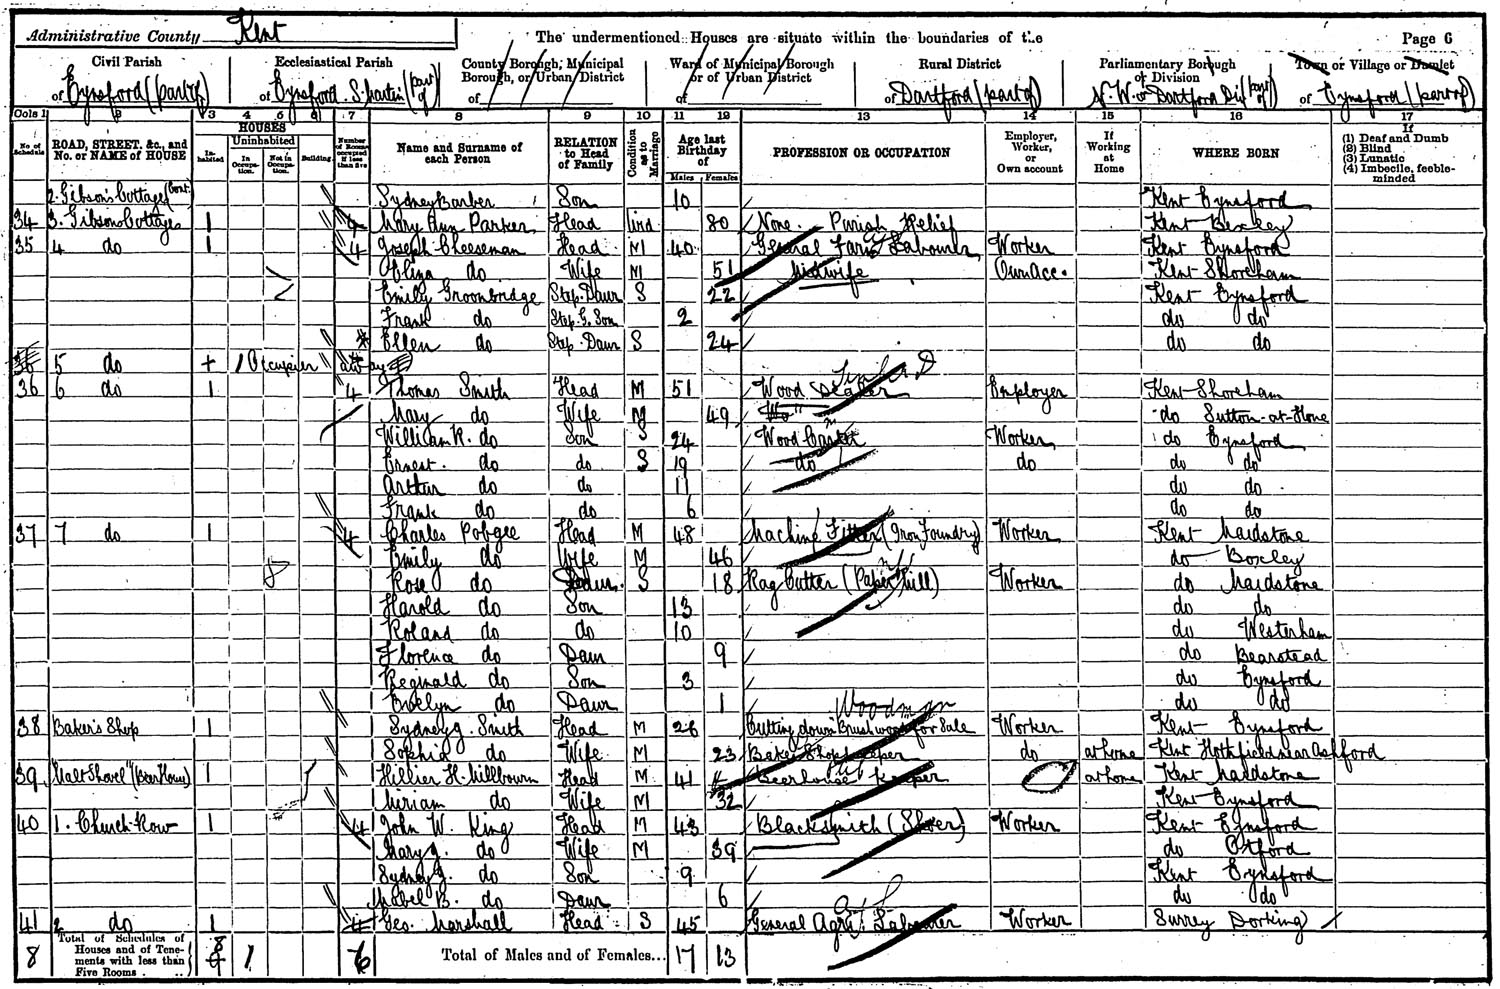 Administrative County Kent
The undermentioned Houses are situate within the boundaries of the
Page 6
Civil Parish
of Eynsford (part of)
Ecclesiastical Parish
of Eynsford S. Martin (part of)
County Borough, Municipal Borough, or Urban District
of
Ward of Municipal Borough or of Urban District
of
Rural District
of Dartford (part of)
Parliamentary Borough or Division
N. W. or Dartford Div (part of)
Town or Village or Hamlet
of Eynsford (part of)
Cols 1 2 3 4 5 6 7 8 9 10 11 12 13 14 15 16 17
No. of Schedule
ROAD, STREET, &c., and No. or NAME of HOUSE
HOUSES
Inhabited
Uninhabited
In Occupation
Not in Occupation
Building
Number of Rooms occupied if less than five
Name and Surname of each Person
RELATION to Head of Family
Condition as to Marriage
Age last Birthday of
Males Females
PROFESSION OR OCCUPATION
Employer, Worker, or Own account
If Working at Home
WHERE BORN
If (1) Deaf and Dumb (2) Blind (3) Lunatic (4) Imbecile, feeble-minded
2. Gibson's Cottages (Cont. Sydney Barber Son 10 Kent Eynsford
34 3. Gibsons Cottages 1 4 Mary Ann Parker Head Wid 80 None. Parish Relief Kent Bexley
35 4 do 1 4 Joseph Cheeseman Head M 40 General Farm Labourer Worker Kent Eynsford
do Wife M 51 Midwife Own Acc. Kent Shoreham
Emily Groombridge Step. Daur S 22 Kent Eynsford
Frank do Step. G. Son 2 do do
Ellen do Step. Daur S 24 do do
36 5 do + 1 Occupier away
36 6 do 1 4 Thomas Smith Head M 51 Wood Dealer Timber D Employer Kent Shoreham
Mary do Wife M 49 do Sutton-at-Hone
William R. do Son S 24 Wood Worker do Eynsford
Ernest. do do S 19 do do do do
Arthur do do 11 do do
Frank do 6 do do
37 7 do 1 4 Charles Pobgee Head M 48 Machine Fitter (Iron Foundry) Worker Kent Maidstone
Emily do Wife M 46 do Boxley
Rose do Daur. S 18 Rag Cutter (Paper Mill) Worker do Maidstone
Harold do Son 13 do do
Roland do do 10 do Westerham
Florence do Daur 9 do Bearstead
Reginald do Son 3 do Eynsford
Evelyn do Daur 1 do do
Woodman
38 Bakers Shop 1 Sydney G. Smith Head M 26 Cutting down Brushwood for Sale Worker Kent Eynsford
Sophia do Wife M 23 Baker Shop keeper do at home Kent Hothfield near Ashford
39 "Malt Shovel" (Beer House) 1 Hillier H. Millbourn Head M 41 Beerhouse Keeper at home Kent Maidstone
Miriam do Wife M 32 Kent Eynsford
40 1. Church Row 1 4 John W. King Head M 43 Blacksmith (Shoer) Worker Kent Eynsford
Mary J. do Wife M 39 do Otford
Sydney G. do Son 9 Kent Eynsford
Mabel B. do Daur 6 do do
41 2 do 1 4 Geo. Marshall Head S 45 General Agri. Labourer Worker Surrey Dorking
8 Total of Schedules of Houses and of Tenements with less than Five Rooms 8 1 6 Total of Males and of Females... 17 13